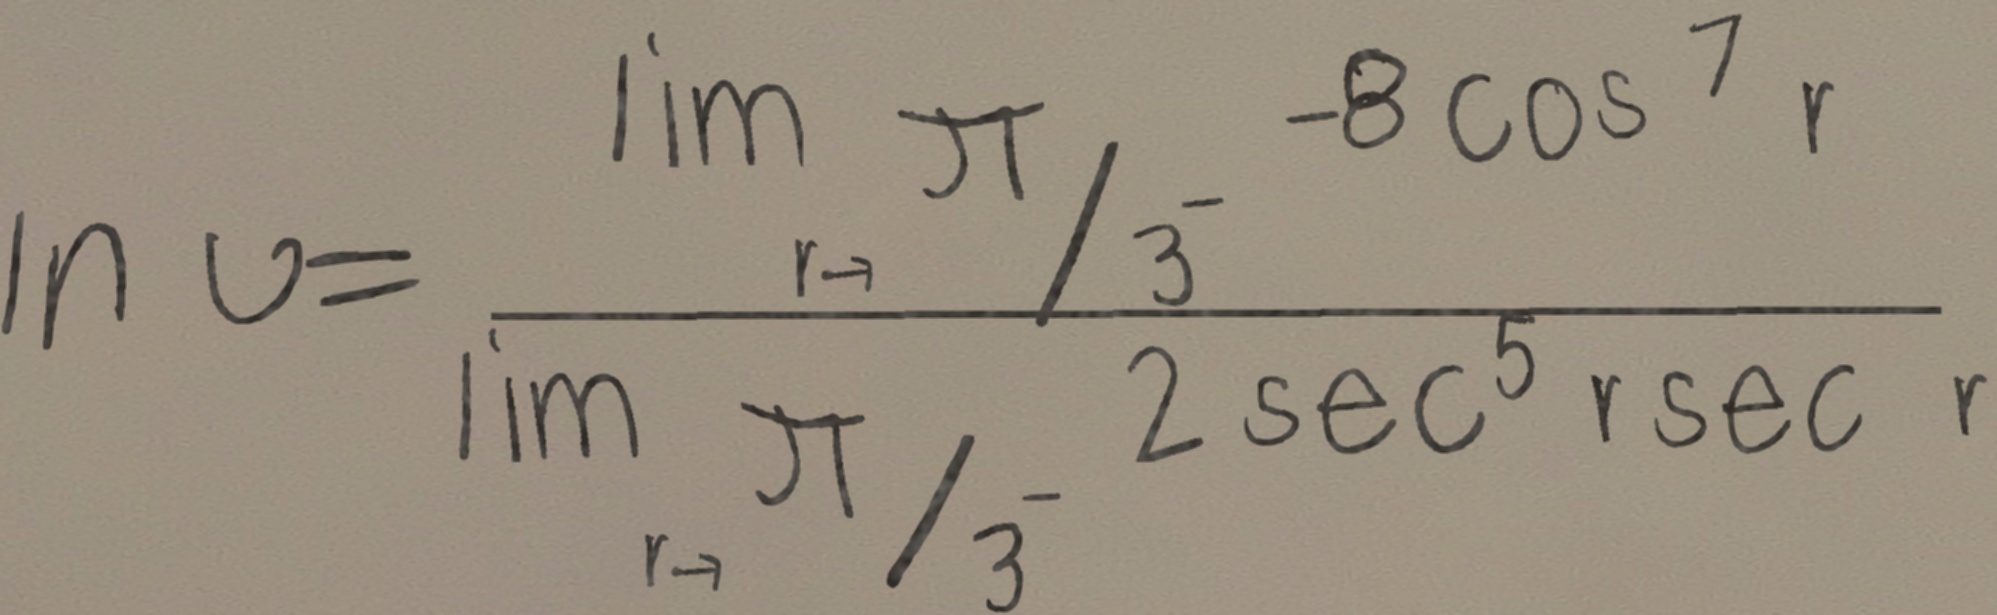 ln υ = \frac{\lim_{r \to π/3^-} -8 cos^7 r}{\lim_{r \to π/3^-} 2 sec^5 r sec r}